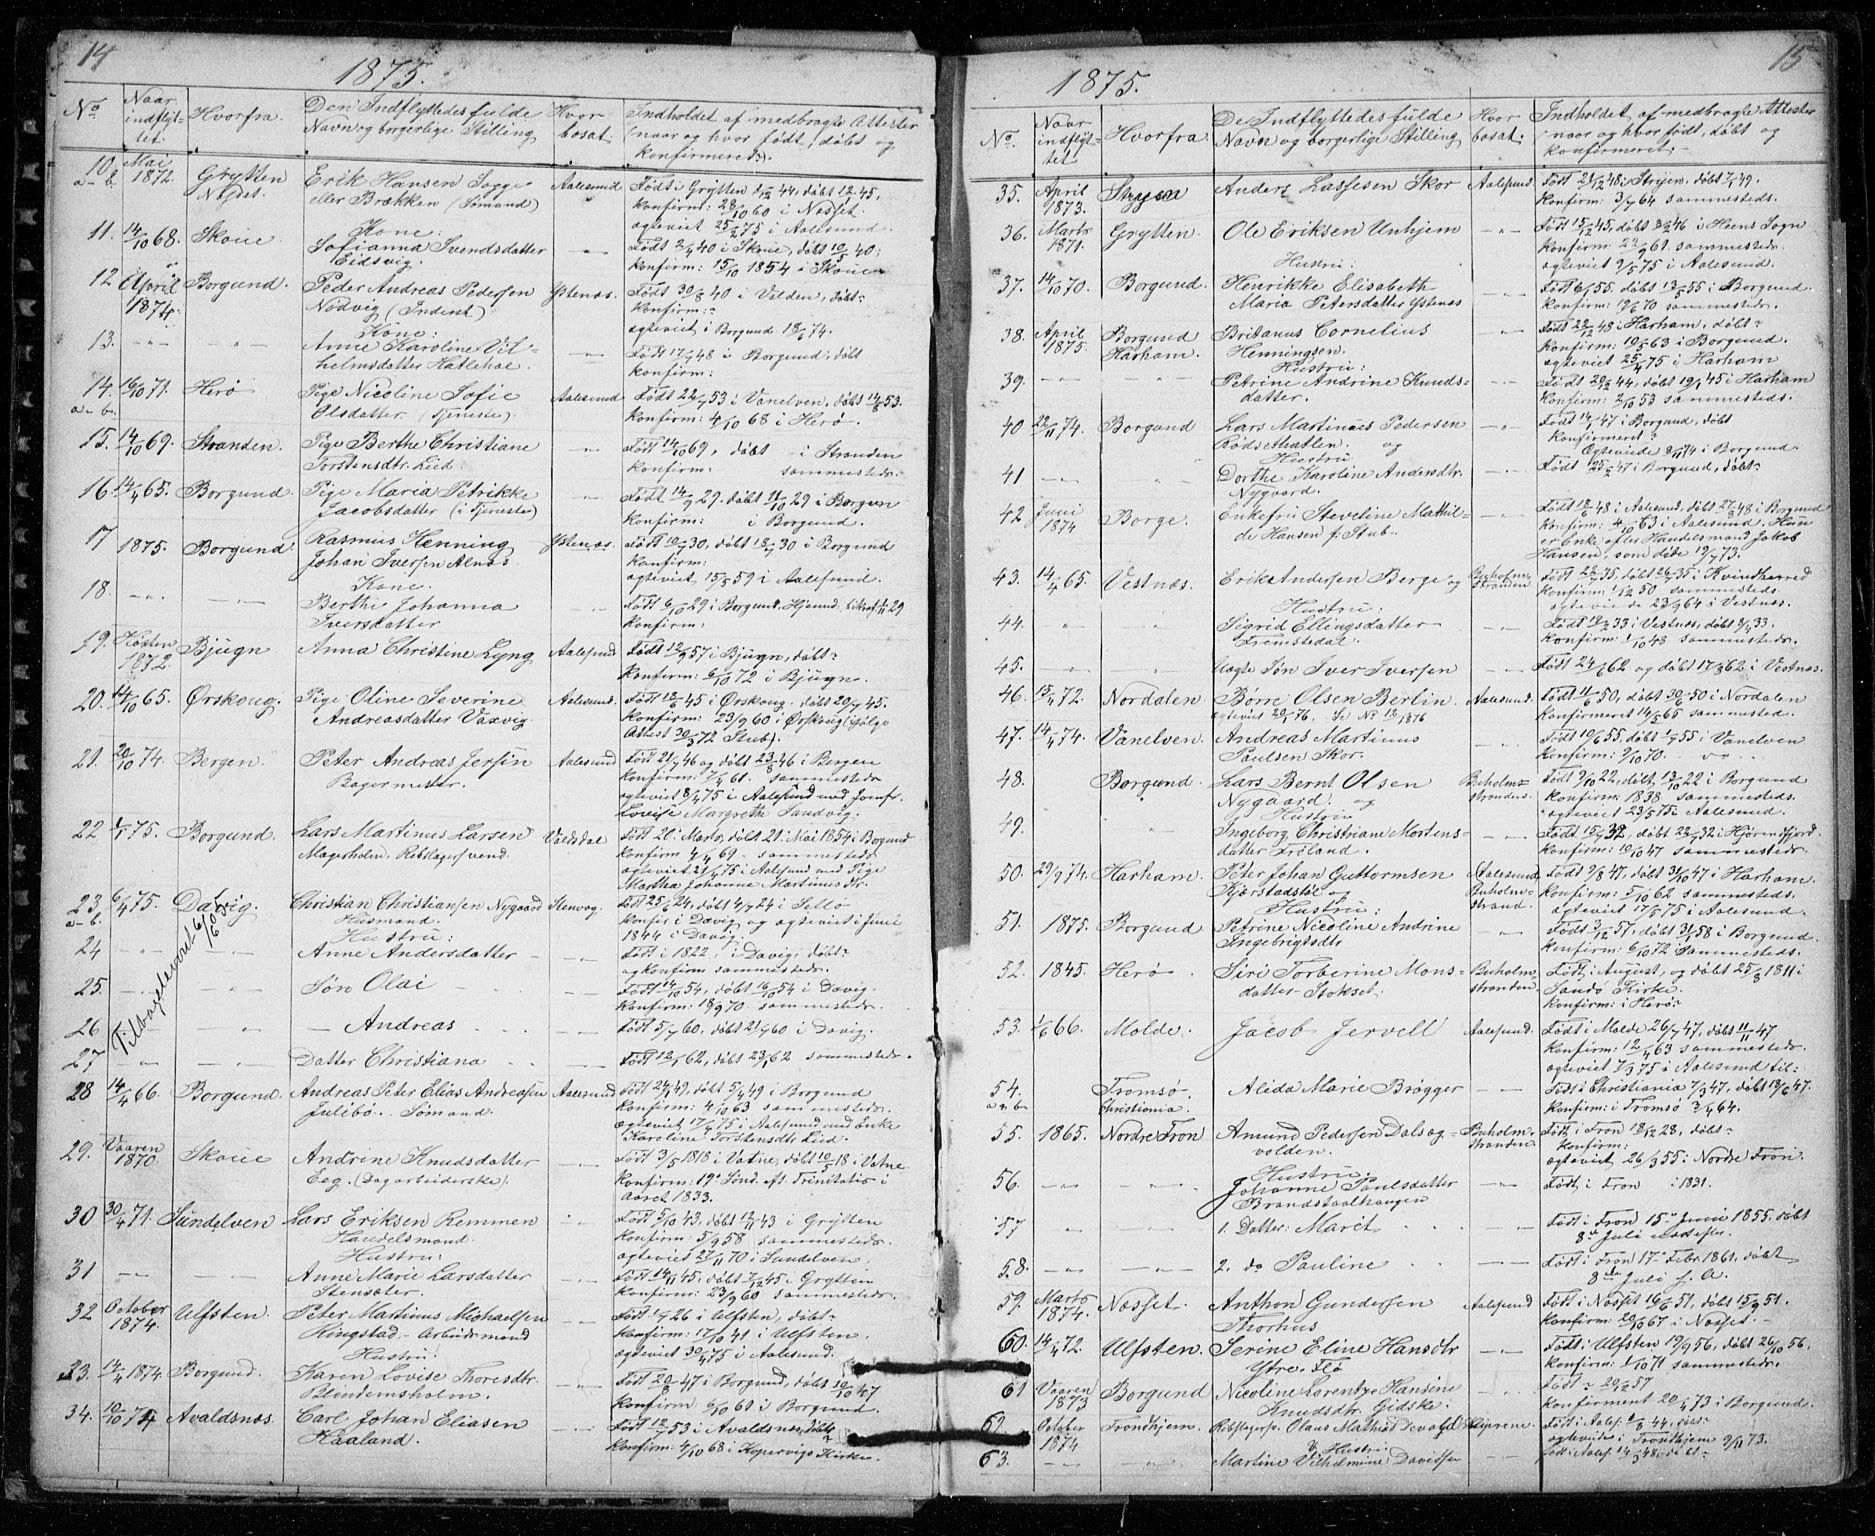 14
1875.
No
Naar indflyttet.
Hvorfra.
Den Indflyttedes fulde Navn og borgerlige Stilling
Hvor bosat.
Indholdet af medbragte Attester (naar og hvor født, døbt og konfirmeret).
10 a-b. Mai 1872. Grytten Nesset. Erik Hansen Sogge eller Brækken (Sømand) Aalesund
Født i Grytten 44. døbt 12 45.
konfirm: 28/10 60 i Nosset.
ægteviet 25/2 75 i Aalesund.
11. 14/10 68. Skoue Kone:
Sofianna Svendsdatter Eidsvig.
Født 2/4 40 i Skoue, døbt 10/5 40;
konfirm: 15/10 1854 i Skoue
12 April 1874. Borgund. Peder Andreas Pedersen Nedvig (Inderst) Ystenæs.
Født 30/8 40 i Volden, døbt-
konfirm:-
ægteviet i Borgund 18/ 74.
13. Kone:
Anne Karoline Vilhelmsdatter Hatlehol.
Født 17/ 48 i Borgund; døbt
konfirm:
14. a-b. 16/10 71. Herø Pige Nicoline Sofie Olsdatter (Tjeneste) Aalesund
Født 22/7 53 i Vanelven, døbt 14/8 53.
konfirm: 4/10 68 i Herø.
15. 14/10 69. Stranden Pige Berthe Christiane Torstensdtr. Lied.
Født 14/10 69, døbt i Stranden
konfirm: sammesteds.
16. 14/4 65. Borgund. Pige Maria Petrikke Jacobsdatter (i Tjeneste)
Født 14/9 29. døbt 11/10 29 i Borgun
konfirm: i Borgund.
17 1875. Borgund. Rasmus Henning Johan Iversen Alnæs. Ystenæs.
Født 10/7 30, døbt 18/7 30 i Borgund
konfirm:
ægteviet 15/5 59 i Aalesund.
18. Kone.
Berthe Johanna Iversdatter
Født 6/10 29 i Borgund.
konfirm:
19. Høsten 1872 Bjugn Anna Christine Lyng Aalesund
Født 12/9 57 i Bjugn, døbt-
konfirm: 6/10 72 i Bjugn.
20. 14/10 65. Ørskoug. Pige Oline Severine Andreasdatter Vaxvig. Aalesund.
Født 18/6 45 i Ørskoug. døbt 29/7 45.
konfirm: 23/9 60 i Ørskoug (ifølge
Attest 30/3 72 Stub).
21. 20/10 74. Bergen. Peter Andreas Jersin Bagermester. Aalesund
Født 21/7 46 og døbt 23/8 46 i Bergen
konfirm: 7/4 61. sammesteds
ægteviet 8/4 75 i Aalesund med Jomfr.
Lovise Margrethe Sandvig.
22 1/1 75. Borgund. Lars Martinus Larsen Magerholm, Rebslagersvend. Volsdal
Født 20. Marts, døbt 21. Mai 1854 i Borgund
konfirm 4/4 69. sammesteds
ægteviet 21/ 75 i Aalesund med Pige
Martha Johanne Martinusdtr.
23. a-b. 6/4 75. Davig. Christian Christiansen Nygaard Husmand. Stenvog.
Født 25/6 24. døbt 4/7 24 i Sellø
konfir i Davig, og ægteviet i Juni
1844 i Davig.
Tilbageleveret
24 Hustru:
Anne Andersdatter
Født i 1822, i Davig, døbt-
og konfirm sammesteds.
25. Søn Olai
Født 14/10 54, døbt 16/10 54 i Davig.
konfirm: 18/9 70 sammesteds.
26 — Andreas
Født 5/7 60, døbt 21/7 60 i Davig.
27 Datter Christiana
Født 12/1 62, døbt 23/1 62 sammesteds.
28 14/4 66. Borgund. Andreas Peter Elias Andreasen Julibø. Sømand. Aalesund
Født 24/ 49, døbt 5/ 49 i Borgund
konfirm: 4/10 63 sammesteds.
ægteviet 17/4 75 i Aalesund med Enke
Karoline Torstensdtr Lied.
29. Vaaren 1870. Skoue Andrine Knudsdatter Eeg. (Dagarbeiderske).
Født 3/5 1818 i Vatne, døbt 10/5 18 i Vatne
konfirm: 19de Sønd. eft. Trinitatis i
Aaret 1833.
30 30/4 71. Sundelven Lars Eriksen Remmen Handelsmand.
Født 5/10 43, døbt 12/11 43 i Grytten
konfirm: 5/9 58 sammesteds.
ægteviet 27/11 70 i Sundelven.
31 Hustru:
Anne Marie Larsdatter Stensøter.
Født 14/11 45, døbt 7/12 45 i Grytten
konfirm: 23/9 60 sammesteds.
32 October 1874. Ulfsten. Peter Martinus Michaelsen Ringstad - Arbeidsmand
Født 1/7 26 i Ulfsten, døbt-
konfirm: 17/10 41 i Ulfsten.
ægteviet 30/4 75 i Aalesund.
33. 14/4 1874. Borgund. Hustru:
Karen Lovise Thoresdtr. Blindemsholm.
Født 20/8 47 i Borgund, døbt 10/10 47
konfirm 6/10 61 i Borgund.
34. 10/10 74 Avaldsnæs. Carl Johan Eliasen Haaland.
Født 12/ 53 i Avaldsnæs, døbt-
konfirm: 4/10 68 i Kopervigs Kirke.
15
1875.
No.
Naar indflyttet
Hvorfra
De Indflyttedes fulde Navn og borgerlige Stilling
Hvor bosat.
Indholdet af medbragte Attester (naar og hvor født, døbt og konfirmeret.-
35. April 1873. Stryen Anders Lassesen Skor Aalesund
Født 21/12 48 i Strijen. døbt 7/1 49.
Konfirm: 3/7 64 sammesteds.
36. Marts 1871. Grytten. Ole Eriksen Unhjem
Født 15/12 45, døbt 46 i Hens Sogn
konfirm: 22/9 61. sammesteds.
ægteviet 9/5 75 i Aalesund.
37. 14/10 70. Borgund. Hustru:
Henrikke Elisabeth Maria Petersdatter Ystenæs
Født 6/5 55. døbt 13/5 55 i Borgund.
konfirm: 12/6 70 sammesteds.
38. April 1875. Borgund Harham. Britanus Cornelius Henningsen.
Født 22/12 48 i Harham, døbt-
konfirm: 10/5 63 i Borgund.
ægteviet 25/4 75 i Harham
39. Hustru:
Petrine Andrine Knudsdatter.
Født 29/12 44. døbt 19/1 45 i Harham
konfirm: 2/10 53 sammesteds.
40 22/11 74. Borgund Lars Martinus Pedersen Rødsethatlen. og
Født 14/1 47 i Borgund, døbt
konfirmeret?
Ægteviede 8/11 74 i Borgund.
41 Hustru
Dorthe Karoline Andersdtr. Nygaard.
Født 25/ 47 i Borgund, døbt-
42 Juni 1874 Borge. Enkefru Steveline Mathilde Hansen f: Stub.
Født 18/6 48 i Aalesund, døbt 27/8 48 i Borgund
Konfirm: 4/10 63 i Aalesund. Hun
er Enke efter Handelsmand Jakob
Hansen, som døde 19/7 73.
43. 14/4 65. Vestnæs. Erik Andersen Berge og Buholmstranden
Født 23/7 35, døbt 26/7 35 i Kvindherred
konfirm: 1/12 50 sammesteds.
ægteviede 23/9 64 i Vestnæs.
44. Hustru:
Sigrid Ellingsdatter Tremstedal.
Født 12/2 33 i Vestnæs, døbt 8/4 33.
konfirm: 1/10 48 sammesteds.
45. Uægte Søn Iver Iversen
Født 24/2 62 og døbt 17/3 62 i Vestnæs.
46. 15/4 72. Nordalen Børre Olsen Berlin Aalesund.
ægteviet 20/1 76. Se No 18/1876
Født 11/6 50, døbt 30/6 50 i Nordalen
Konfirmeret 14/5 65 sammested.
47. 14/4 74. Vanelven. Andreas Martinus Paulsen Skor.
Født 10/6 55. døbt 1/7 55 i Vanelven
konfirm: 2/10 70. do.
48. Borgund. Lars Bernt Olsen Nygaard. og Buholmstranden.
Født 9/10 22, døbt 13/10 22 i Borgund
konfirm: 1838 sammesteds.
ægteviet 23/5 75 i Aalesund.
49. Hustru
Ingeborg Christiane Mortensdatter Frøland.
Født 15/7 32, døbt 22/7 32 i Hjørendfjord.
konfirm: 10/10 47 sammesteds.
50. 29/9 74. Harham. Peter Johan Guttormsen Kjærstadstle og Aalesund, Buholmstrand.
Født 9/8 47, døbt 3/10 47 i Harham.
konfirm: 5/10 62 sammesteds.
ægteviet 17/5 75 i Aalesund.
51. 1875. Borgund Hustru:
Petrine Nicoline Andrine Ingebrigtsdtr
Født 3/12 57, døbt 31/1 58 i Borgund.
konfirm: 6/10 72 i sammesteds.
52. 1845. Herø. Siri Torberine Monsdatter Stokset. Buholmstranden.
Født i August, og døbt 25/8 1811 i
Sandø Kirke.
konfirm: i Herø-
53. 1/6 66. Molde. Jacob Jervell Aalesund.
Født i Molde 26/7 47, døbt 11/11 47
Konfirm: 12/4 63 sammesteds.
ægteviet 7/3 75 i Aalesund til-
54. a-b. Tromsø. Christiania. Alida Marie Brøgger
Født i Christiania 7/3 47, døbt 13/6 47.
Konfirm: i Tromsø 3/4 64.
55. 1865. Nordre Fron Amund Pedersen Dalsogvolden. Buholmstranden
Født i Fron 18/12 28, døbt-
konfirm:
ægteviet 26/3 55 i Nordre Fron.
56. Hustru:
Johanne Paulsdatter Brandstaalhaugen
Født i Fron i 1831.
57 1. Datter: Marit
Født i Fron 15de Junii 1855. døbt
8de Juli
58. 2. do Pauline
Født i Fron 17de Febr. 1861. døbt
8de Juli s. A.
59. Marts 1874. Nosset. Anthon Gundersen Thorhus Aalesund
Født i Nosset 16/6 51, døbt 15/9 51.
konfirm: 20/10 67 i Nosset.
60. 14/4 72. Ulfsten. Serine Eline Hansdtr Ytre Flø
Født i Ulfsten 19/9 56, døbt 26/10 56.
konfirm: 1/10 71 sammesteds.
61 Vaaren 1873 Borgund Nicoline Lorentze Hansine Knudsdtr. Gidske.
Født- 20/12 57
konfirmeret 20/4 73 i Borgund.
62. October 1874 Trondhjem. Rebslagersv. Olaus Mathias
Født i Aales. 44,
ægteviet i Trondhjem 9/11 73.
63. Hustru
Martine Vilhelmine Davidsen
Født i Aales. 14/3 48.